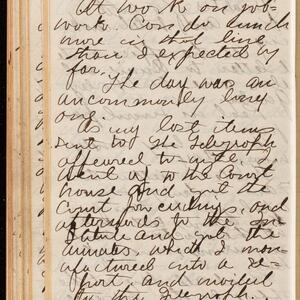 At work on job-
work. Can do much
more in that line
than I expected by
far.
The day was an
uncommonly busy
one.
As my last items
sent to the Telegraph
appeared to-nite, I
went up to the Court
house and got the
Court proceedings, and
afterwards to the
and got the
minutes, which I man-
ufactured into a re-
port, and mailed
to the Telegraph.